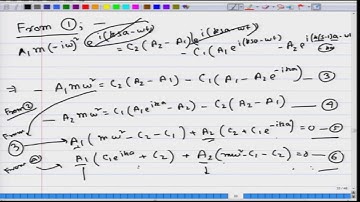 From ①;
A₁m(-iω)² e^i(ksa-ωt) = C₂(A₂-A₁) e^i(ksa-ωt) - C₁(A₁e^i(ksa-ωt) - A₂e^i(k(s-1)a-ωt))
⇒ -A₁mω² = C₂(A₂-A₁) - C₁(A₁-A₂e^-ika) -③
From ② -A₂mω² = C₁(A₁e^ika-A₂) - C₂(A₂-A₁) -④
From ③ A₁(mω²-C₂-C₁) + A₂(C₂+C₁e^-ika) = 0 -⑤
From ④ A₁(C₁e^ika+C₂) + A₂(mω²-C₁-C₂) = 0 -⑥